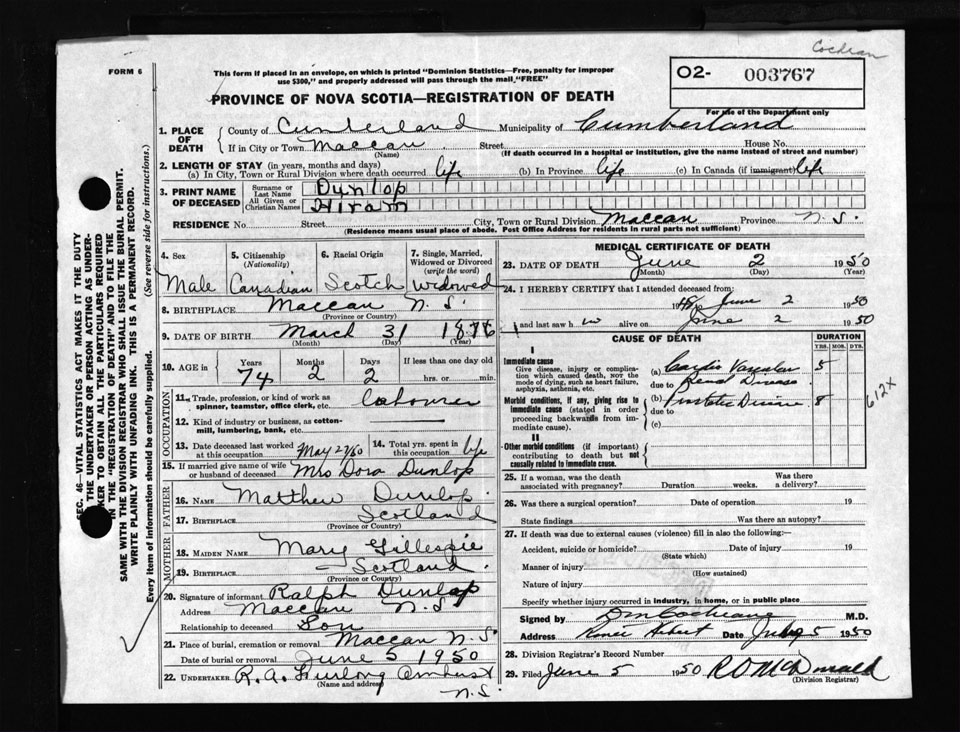 Cochran
FORM 6
This form if placed in an envelope, on which is printed "Dominion Statistics—Free, penalty for improper
use $300," and properly addressed will pass through the mail, "FREE"
O2- 003767
For use of the Department only
PROVINCE OF NOVA SCOTIA—REGISTRATION OF DEATH
1. PLACE OF DEATH
County of Cumberland Municipality of Cumberland
If in City or Town Maccan Street House No.
(Name) (If death occurred in a hospital or institution, give the name instead of street and number)
2. LENGTH OF STAY (in years, months and days)
(a) In City, Town or Rural Division where death occurred life (b) In Province life (c) In Canada (if immigrant) life
3. PRINT NAME OF DECEASED
Surname or Last Name Dunlop
All Given or Christian Names Hiram
RESIDENCE No. Street City, Town or Rural Division Maccan Province N.S.
(Residence means usual place of abode. Post Office Address for residents in rural parts not sufficient)
4. Sex Male
5. Citizenship (Nationality) Canadian
6. Racial Origin Scotch
7. Single, Married, Widowed or Divorced (write the word) Widowed
8. BIRTHPLACE Maccan N.S.
(Province or Country)
9. DATE OF BIRTH March 31 1876
(Month) (Day) (Year)
10. AGE in Years 74 Months 2 Days 2 If less than one day old
hrs. or min.
OCCUPATION
11. Trade, profession, or kind of work as spinner, teamster, office clerk, etc. Labourer
12. Kind of industry or business, as cotton-mill, lumbering, bank, etc.
13. Date deceased last worked at this occupation May 27/50
14. Total yrs. spent in this occupation life
15. If married give name of wife or husband of deceased Mrs Dora Dunlop
FATHER
16. NAME Matthew Dunlop
17. BIRTHPLACE Scotland
(Province or Country)
MOTHER
18. MAIDEN NAME Mary Gillespie
19. BIRTHPLACE Scotland
(Province or Country)
20. Signature of informant Ralph Dunlop
Address Maccan N.S
Relationship to deceased Son
21. Place of burial, cremation or removal Maccan N.S.
Date of burial or removal June 5 1950
22. UNDERTAKER R. A. Furlong Amherst
(Name and address) N.S.
MEDICAL CERTIFICATE OF DEATH
23. DATE OF DEATH June 2 1950
(Month) (Day) (Year)
24. I HEREBY CERTIFY that I attended deceased from:
19 June 2 1950
and last saw h alive on June 2 1950
CAUSE OF DEATH DURATION
YRS. MOS. DYS.
I
Immediate cause
Give disease, injury or complication which caused death, NOT the mode of dying, such as heart failure, asphyxia, asthenia, etc.
(a) Cardio Vascular 5
due to Renal Disease
Morbid conditions, if any, giving rise to immediate cause (stated in order proceeding backwards from immediate cause).
(b) Prostatic Disease 8
due to
(c)
612X
II
Other morbid conditions (if important) contributing to death but not causally related to immediate cause.
25. If a woman, was the death associated with pregnancy? Duration weeks. Was there a delivery?
26. Was there a surgical operation? Date of operation 19
State findings Was there an autopsy?
27. If death was due to external causes (violence) fill in also the following:
Accident, suicide or homicide? Date of injury 19
(State which)
Manner of injury
(How sustained)
Nature of injury
Specify whether injury occurred in industry, in home, or in public place
Signed by Cochrane M.D.
Address Hebert Date 5 1950
28. Division Registrar's Record Number
29. Filed June 5 1950 R D McDonald
(Division Registrar)
SEC. 46—VITAL STATISTICS ACT MAKES IT THE DUTY
OF THE UNDERTAKER OR PERSON ACTING AS UNDER-
TAKER TO OBTAIN ALL THE PARTICULARS REQUIRED
IN THE "REGISTRATION OF DEATH" AND TO FILE THE
SAME WITH THE DIVISION REGISTRAR WHO SHALL ISSUE THE BURIAL PERMIT.
WRITE PLAINLY WITH UNFADING INK. THIS IS A PERMANENT RECORD.
Every item of information should be carefully supplied. (See reverse side for instructions.)